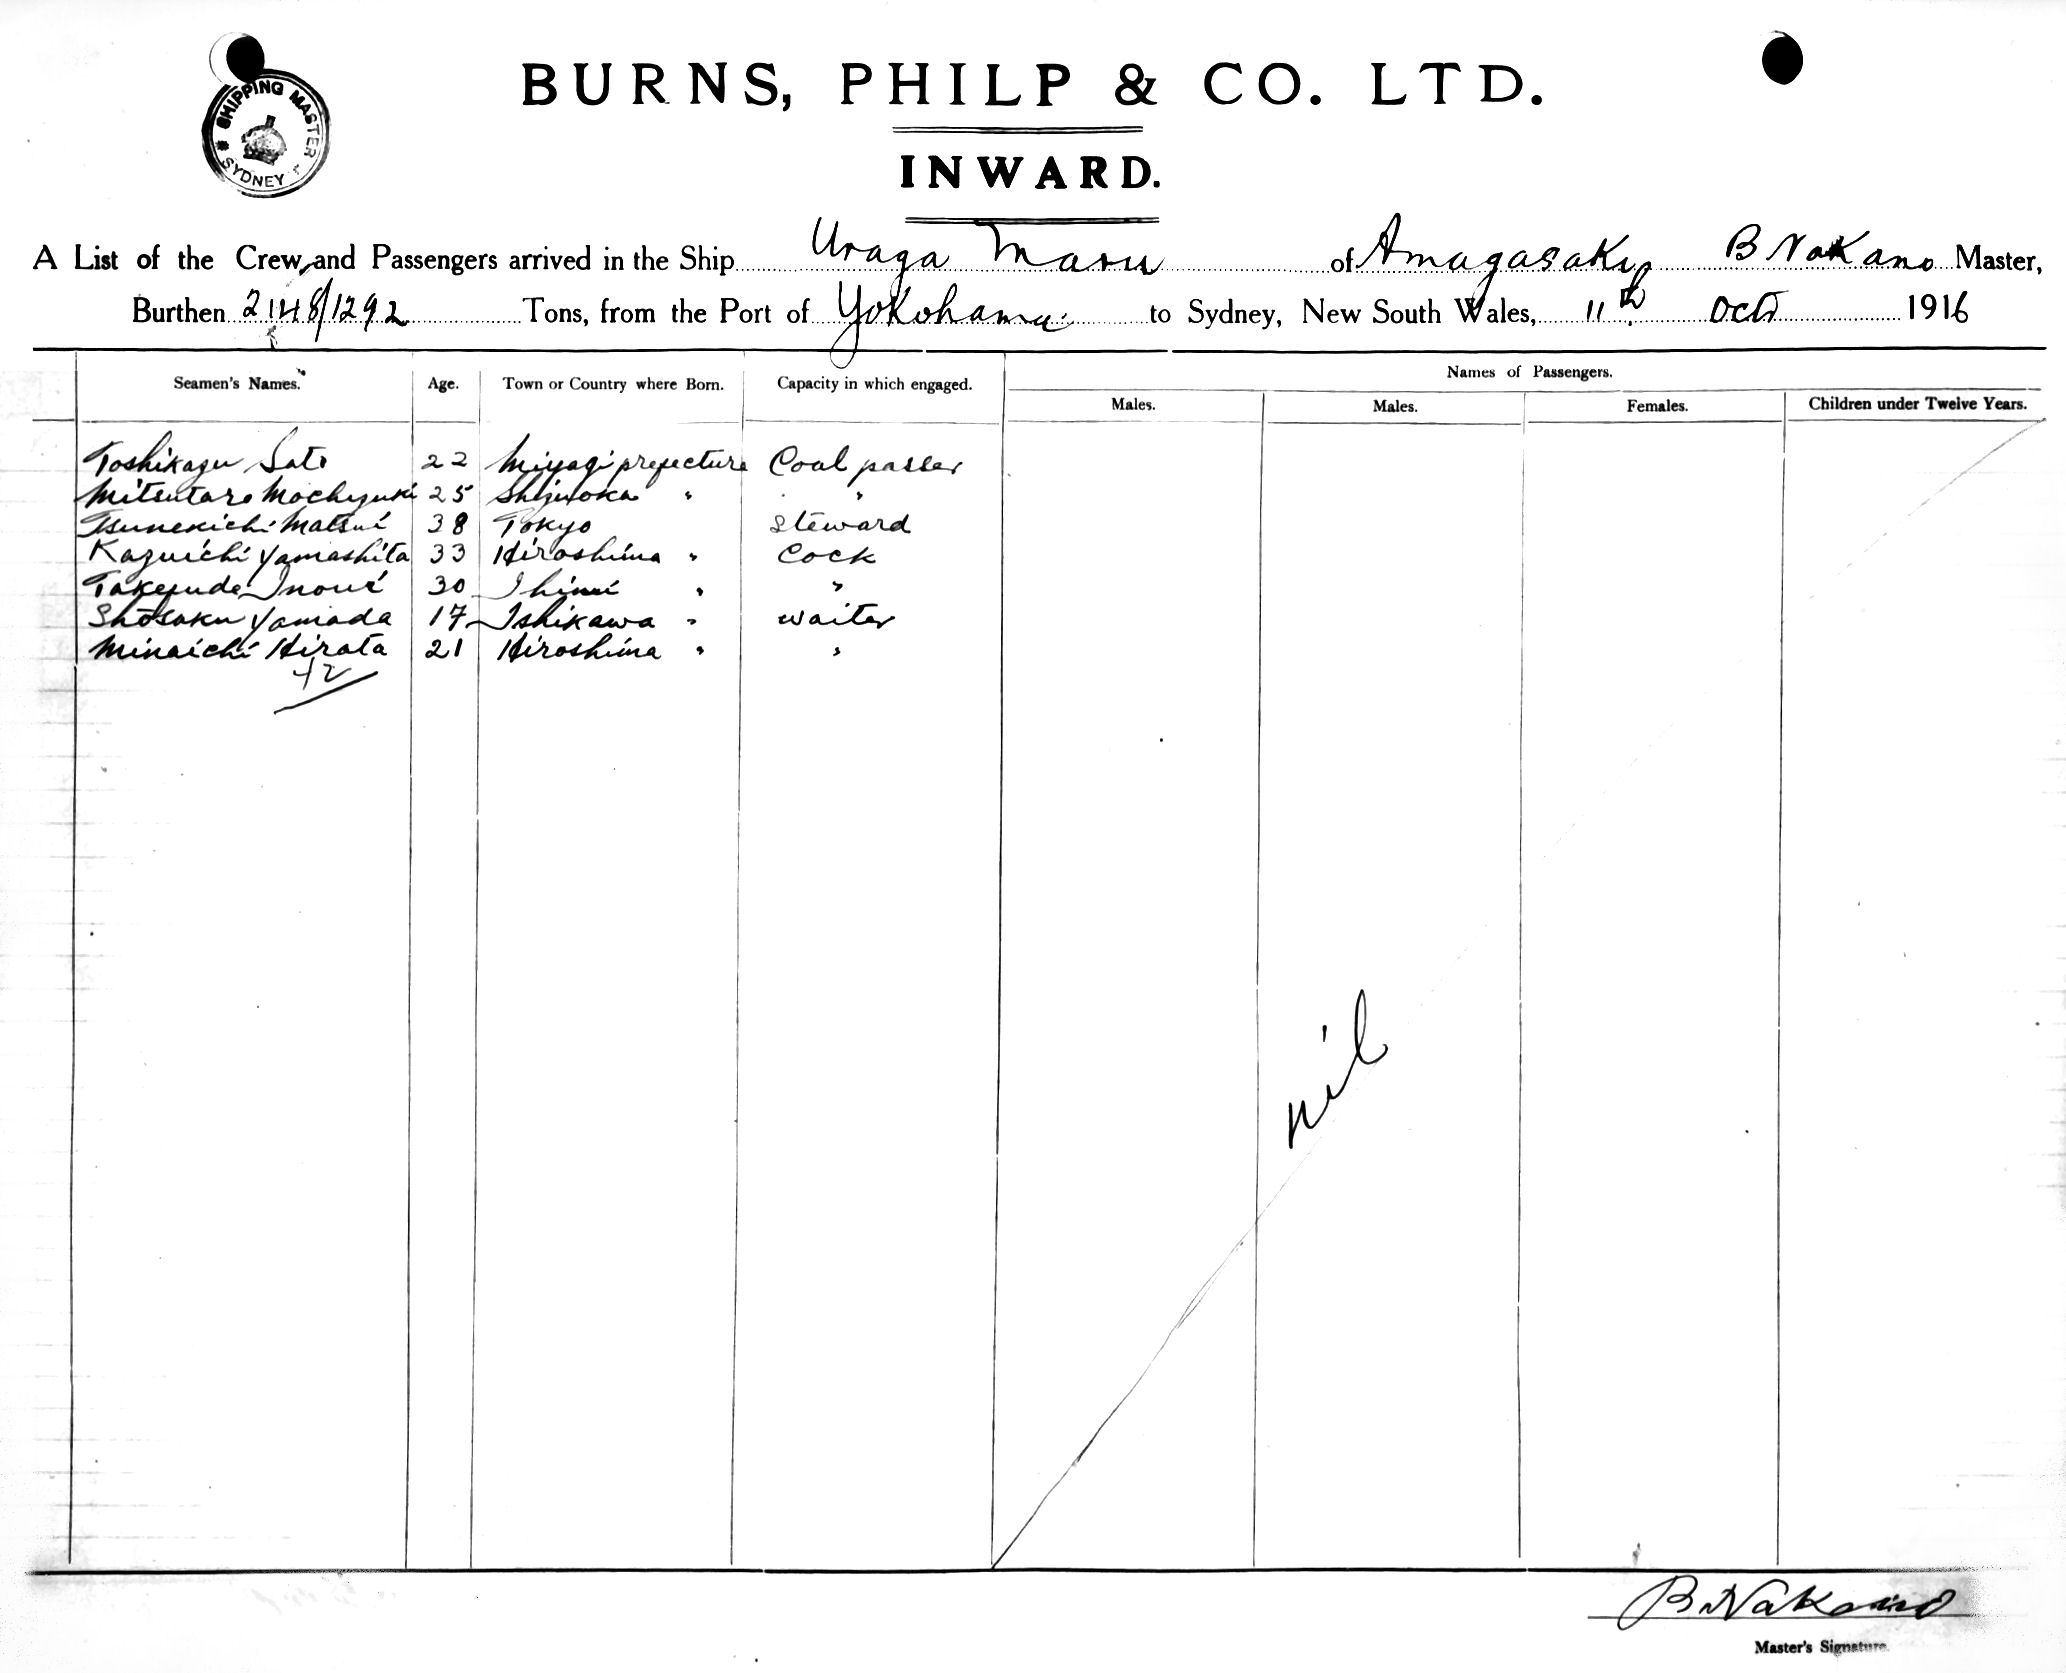 SHIPPING MASTER
SYDNEY
BURNS, PHILP & CO. LTD.
INWARD.
A List of the Crew, and Passengers arrived in the Ship Uraga Maru of Amagasaki B Nakano Master,
Burthen 2148/1292 Tons, from the Port of Yokohama to Sydney, New South Wales, 11th Oct 1916
Seamen's Names. Age. Town or Country where Born. Capacity in which engaged. Names of Passengers.
Males. Males. Females. Children under Twelve Years.
Toshikazu Sato 22 Miyagi prefecture Coal passer
Mitsutaro Mochizuki 25 Shizuoka " "
Tsunekichi Matsui 38 Tokyo Steward
Kazuichi Yamashita 33 Hiroshima " Cock
Inoué 30 " "
Shōsaku Yamada 17 Ishikawa " waiter
Minaichi Hirata 21 Hiroshima " "
42
nil
B Nakano
Master's Signature.